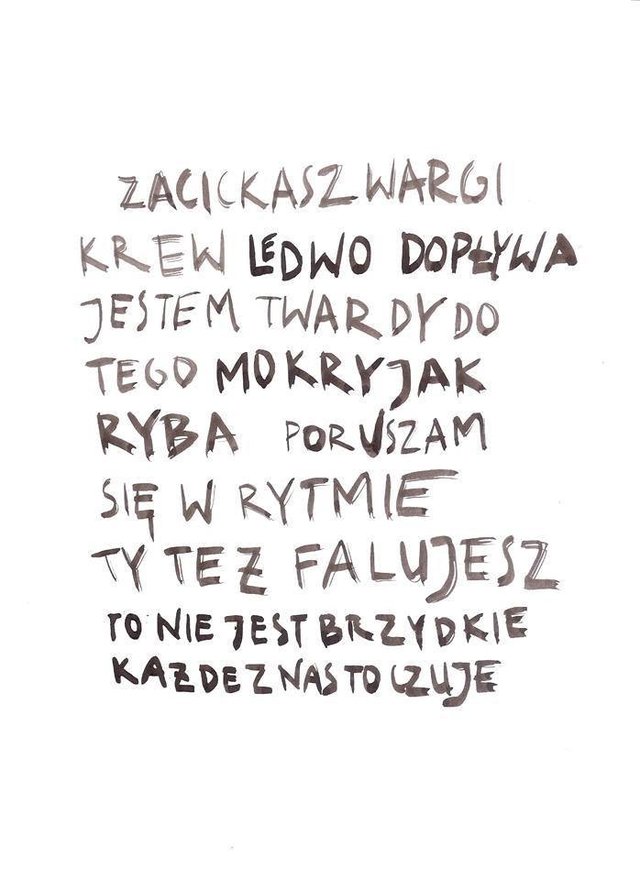 ZACICKASZ WARGI
KREW LEDWO DOPŁYWA
JESTEM TWARDY DO
TEGO MOKRY JAK
RYBA PORUSZAM
SIĘ W RYTMIE
TY TEŻ FALUJESZ
TO NIE JEST BRZYDKIE
KAŻDE Z NAS TO CZUJE